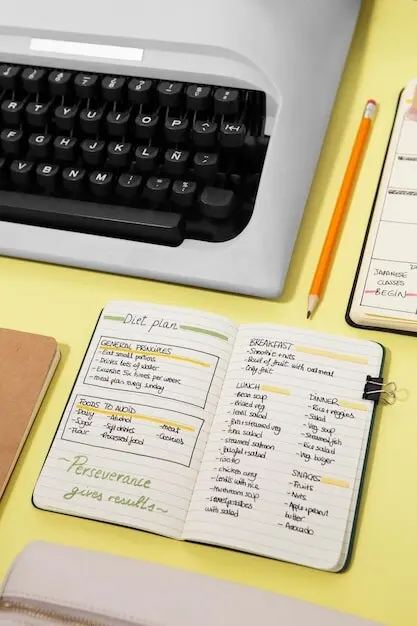 R T Y U I O P
F G H J K L Ñ
V B N M
JAPANESE
CLASSES
BEGIN
Diet plan
GENERAL PRINCIPLES
-Eat small portions
-Drinks lots of water
-Exercise five times per week
-Meal plan every Sunday
FOODS TO AVOID
-Daily -Alcohol -Meat
-Sugar -Soft drinks -Cookies
-Flour -Processed food
~Perseverance
gives results~
BREAKFAST
-Smoothie + nuts
-Bowl of fruit with oatmeal
-Only fruit
LUNCH
-Bean soup
-Mixed veg
-lentil salad
-fish + steamed veg
-tuna salad
-steamed salmon
-falafel + salad
-risotto
-chicken curry
-lentils with rice
-Mushroom soup
with salad
DINNER
-Rice + veggies
-Salad
-Veg soup
-Steamed fish
-Veg burger
SNACKS
-Fruits
-Nuts
-Apple + peanut
butter
-Avocado